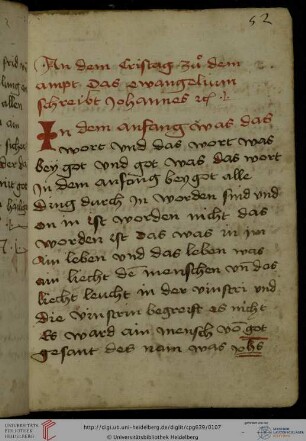 52
An dem Cristag zuͦ dem
ampt Das ewangelium
schreibt Johannes
In dem anfang was das
wort und das wort was
bey got und got was das wort
In dem anfang bey got alle
ding durch in worden sind und
on in ist worden nicht das
worden ist das was in jm
ain leben und das leben was
ain liecht de menschen vn̄ das
liecht leucht in der vinstri und
die vinstrin begreif es nicht
Es ward ain mensch vō got
gesant des nam was johs
UNIVERSITÄTS-
BIBLIOTHEK
HEIDELBERG
http://digi.ub.uni-heidelberg.de/diglit/cpg639/0107
© Universitätsbibliothek Heidelberg